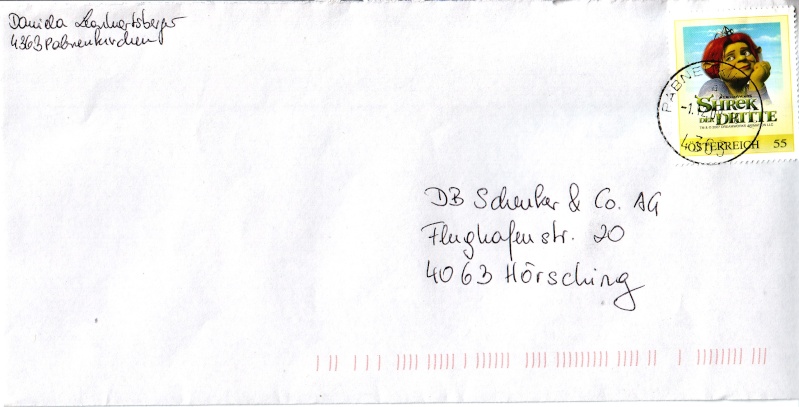 Daniela
4363 Pabneukirchen
PABNE
4363
SHREK
DER DRITTE
ÖSTERREICH 55
DB Schenker & Co. AG
Flughafenstr. 20
4063 Hörsching